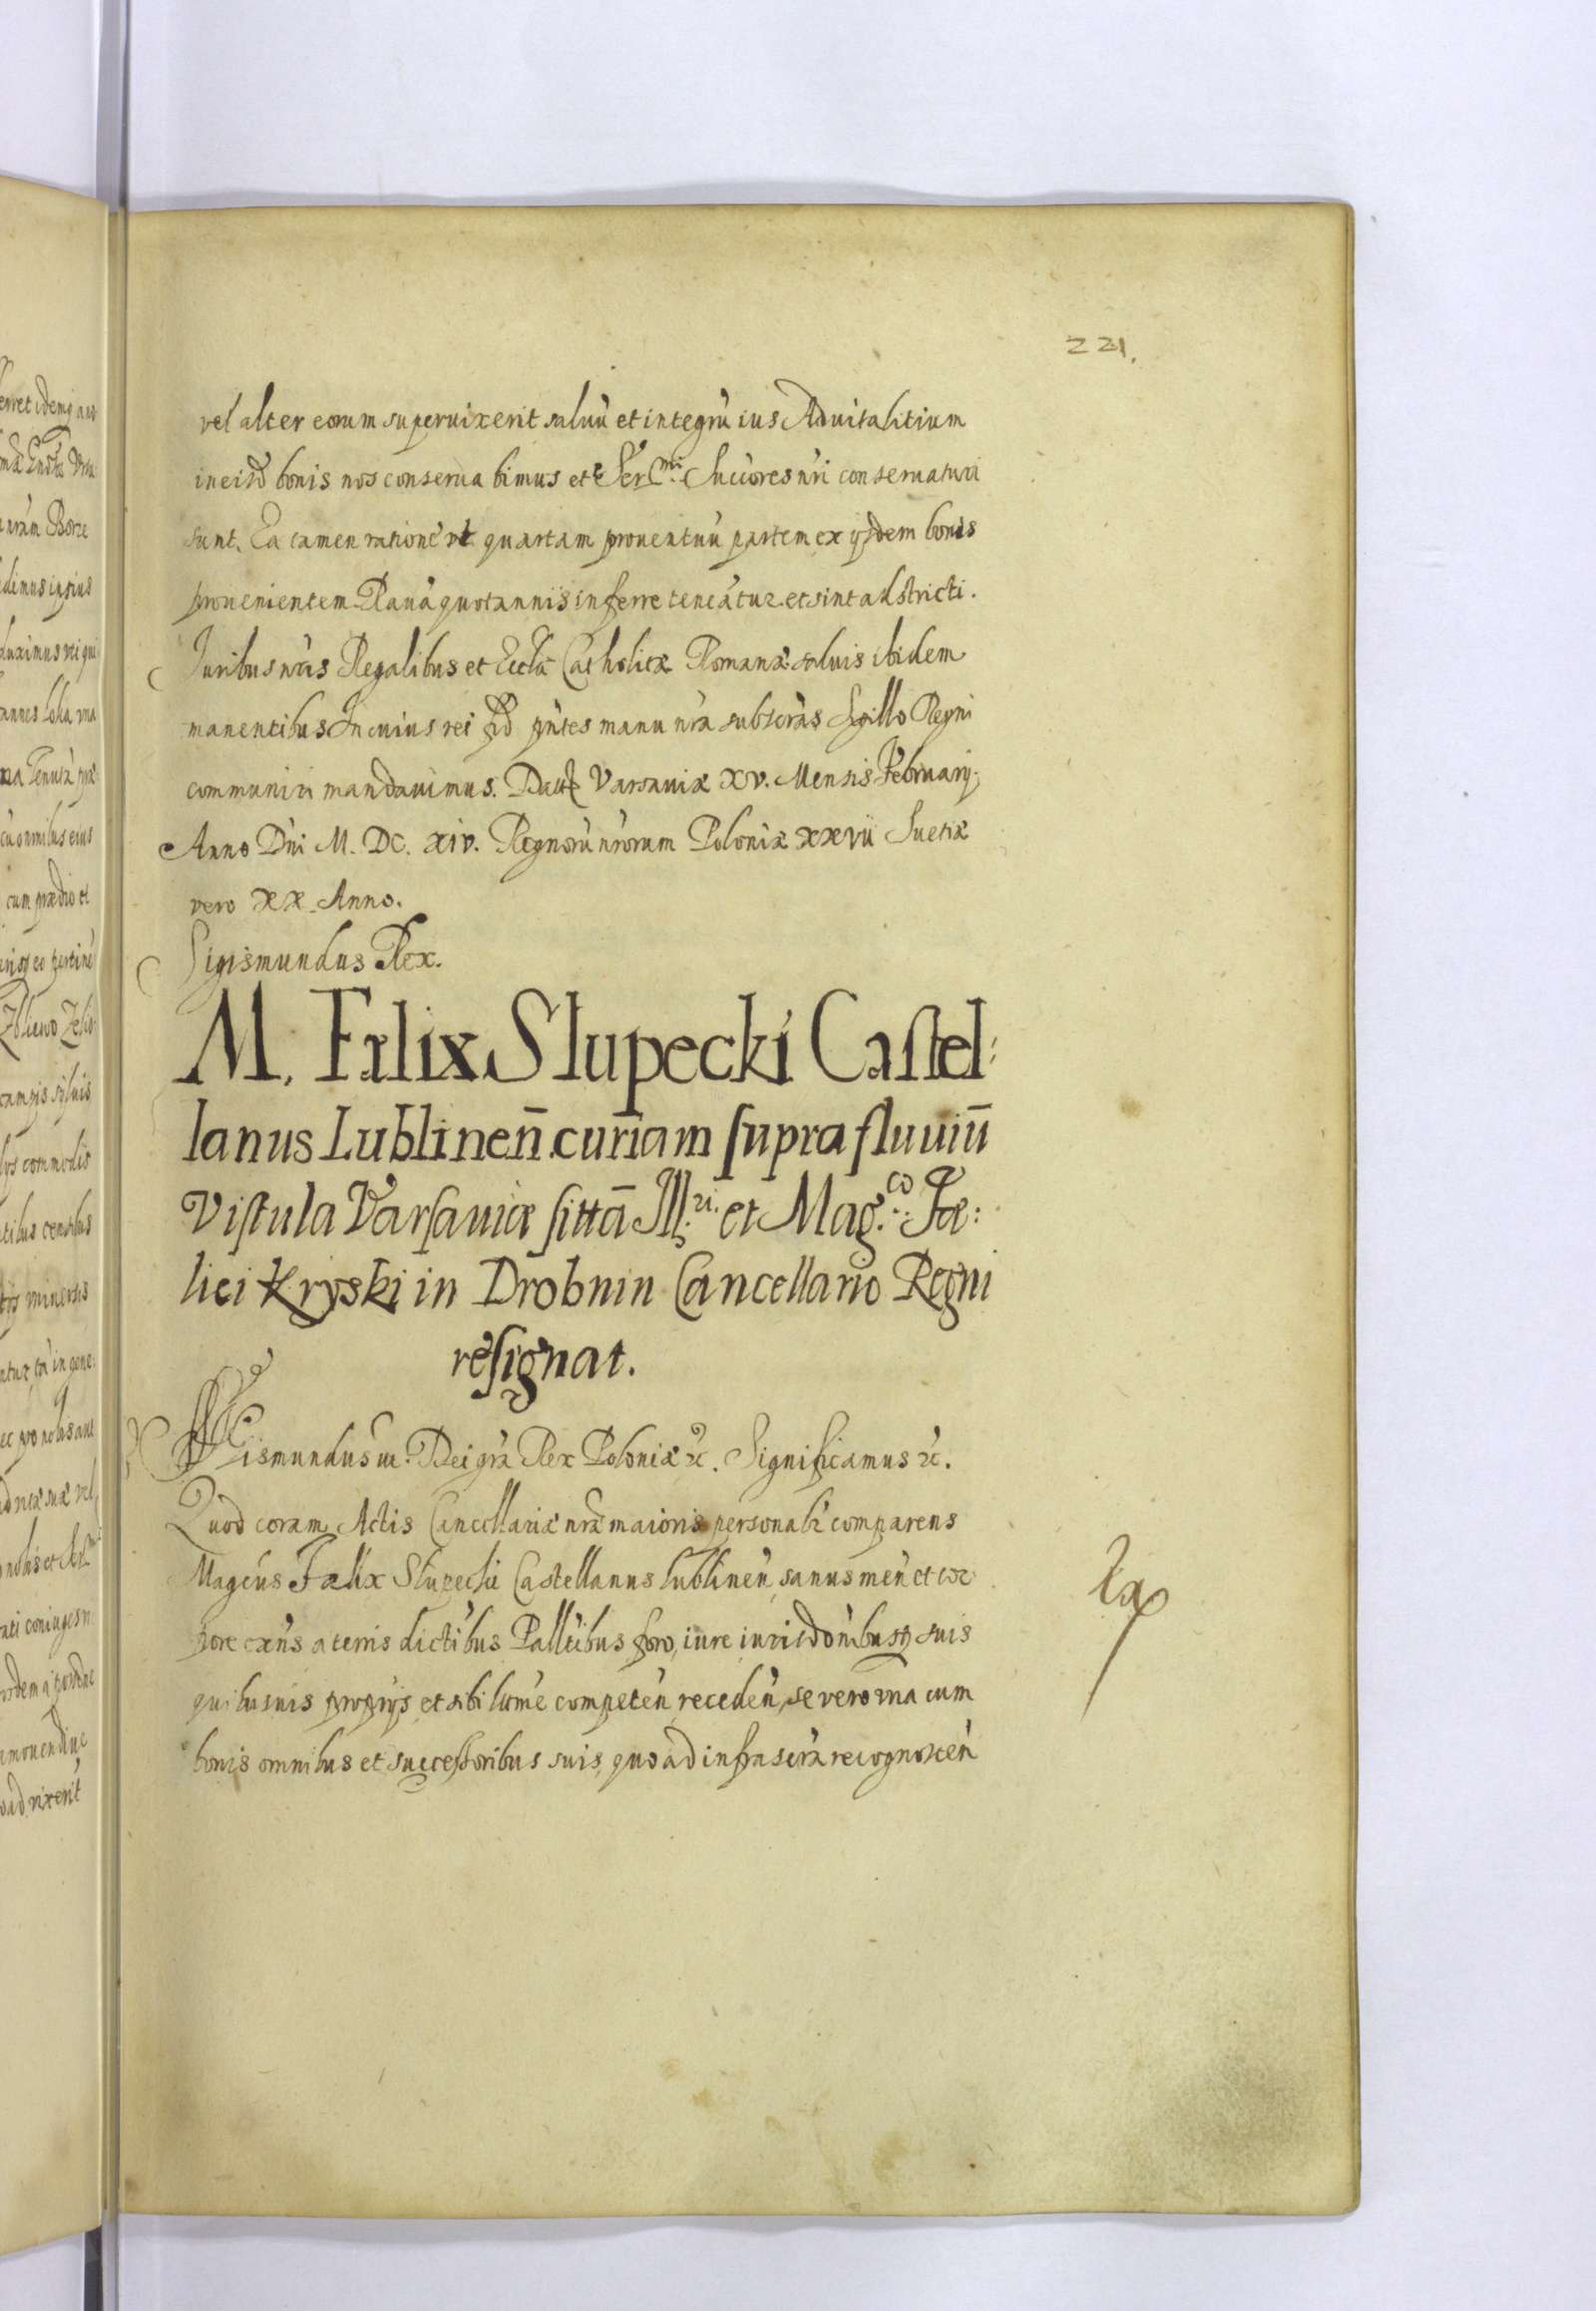 221.
vel alter eorum superuixerit saluũ et integrũ ius Aduitalitium
in eisd bonis nos conseruabimus et Ser^mi Succores nři conseruaturi
sunt. Ea tamen rationc vt quartam prouentuũ partem ex ijsdem bonis
prouenientem Rauã quotannis inferre teneãtur et sint adstricti.
Iuribus nřis Regalibus et Eccłæ Catholicæ Romanæ saluis ibidem
manentibus In cuius rei fid pñtes manu nřa subscřas Sigillo Regni
communiri mandauimus. Dat Varsauiæ XV. Mensis Februarij.
Anno Dñi M. DC. XIV. Regnorũ nřorum Poloniæ XXVII Suetiæ
vero XX Anno.
Sigismundus Rex.
M. Fælix Slupecki Castel:
lanus Lublineñ. curiam supra fluuiũ
Vistula Varsauiæ sittã Ill^ri. et Mag^co: Fæ:
lici Kryski in Drobnin Cancellario Regni
resignat.
Sigismundus III. Dei gřa Rex Poloniæ &c. Significamus &c.
Quod coram Actis Cancellariæ nřæ maioris personalř comparens
Magcus Fælix Slupecki Castellanus Lublineñ, sanus meñ et cor
pore exñs a terris districtibus Pallatibus foro, iure iurisdõnibusq suis
quibusuis proprijs et sibi lĩtme competeñ recedeñ, se vero vna cum
bonis omnibus et successoribus suis, quo ad infrascřa recognosceñ